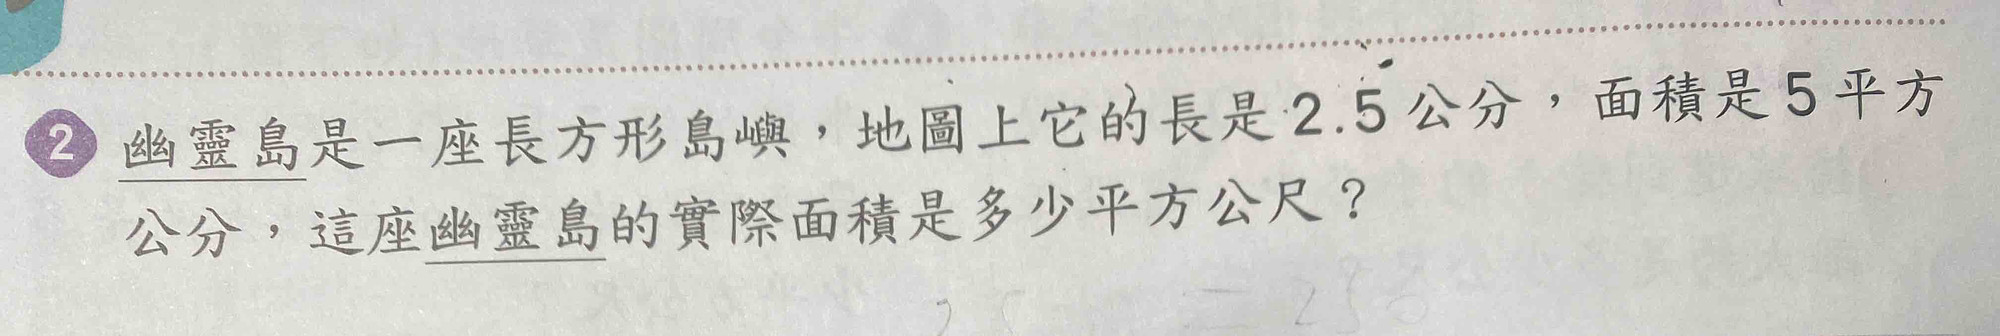 2 幽靈島是一座長方形島嶼，地圖上它的長是2.5公分，面積是5平方
公分，這座幽靈島的實際面積是多少平方公尺？